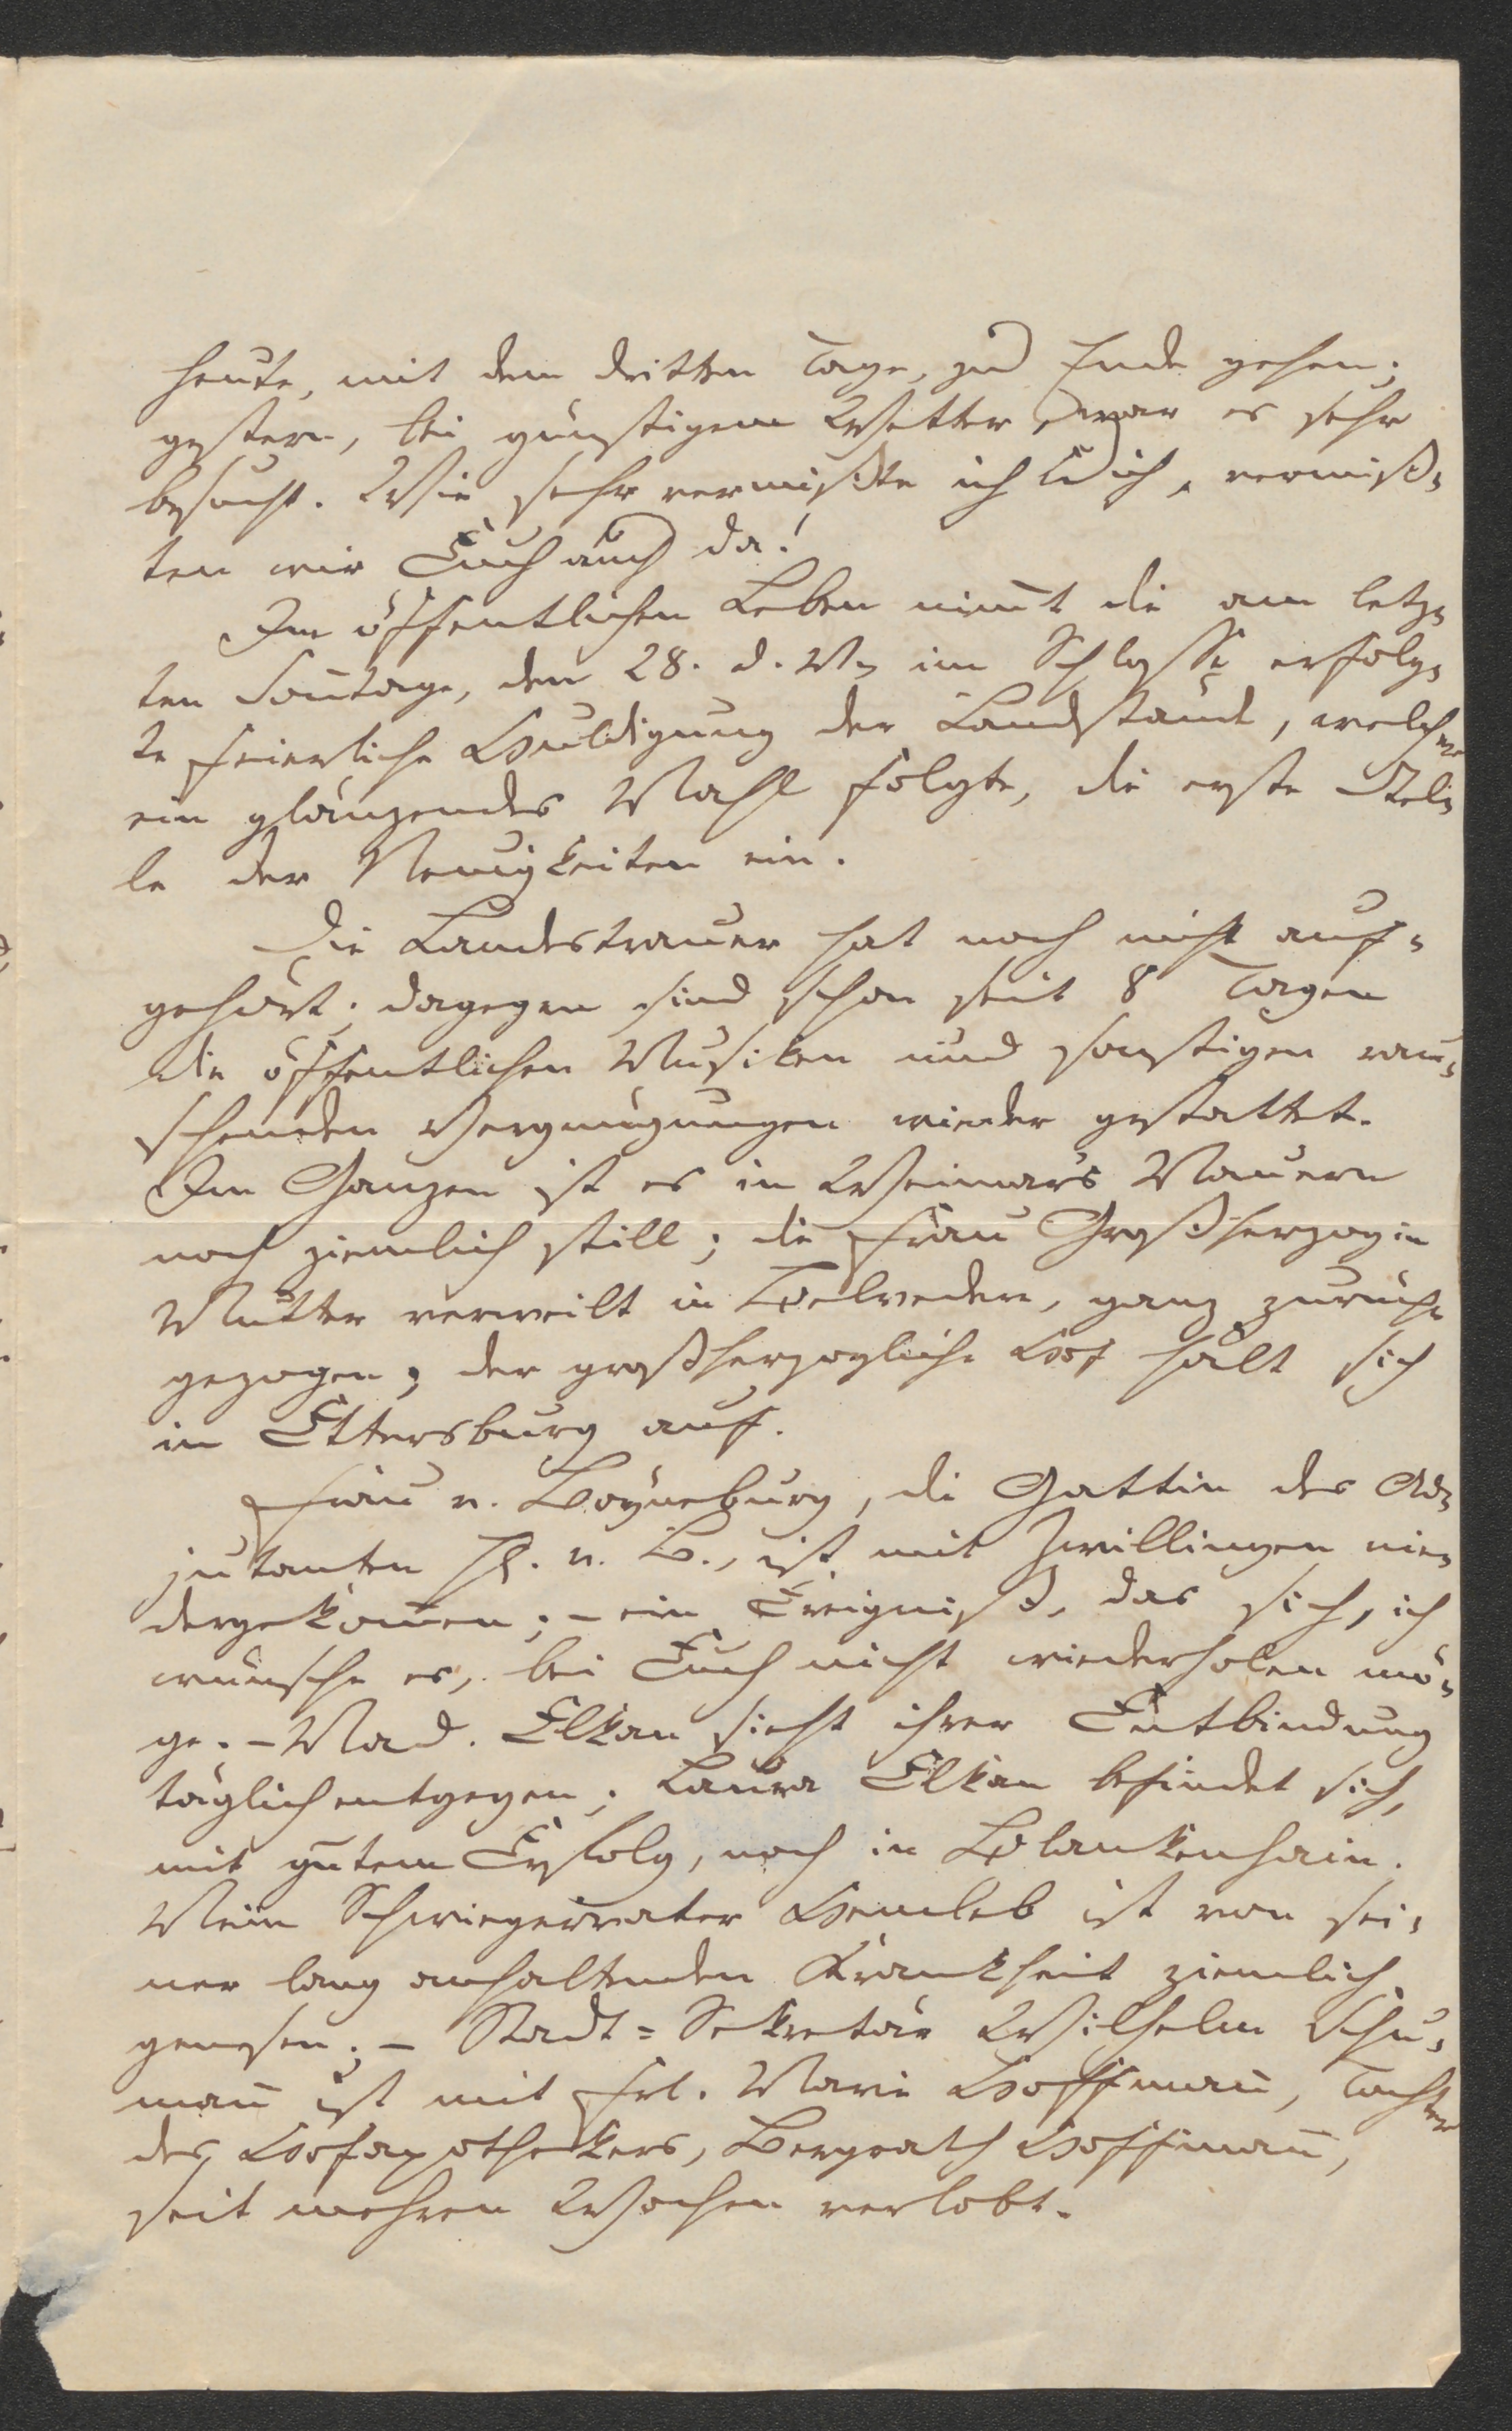 heute, mit dem dritten Tage, zu Ende gehen;
gestern, bei günstigem Wetter, war es sehr
besucht. Wie sehr vermißte ich Dich, vermiß-
ten wir Euch auch da!
Im öffentlichen Leben nim̅t die am letz-
ten Son̅tage, den 28. d. M., im Schlosse erfolg-
te feierliche Huldigung der Landstände, welcher
ein glänzendes Mahl folgte, die erste Stel-
le der Neuigkeiten ein.
Die Landestrauer hat noch nicht auf-
gehört; dagegen sind schon seit 8 Tagen
die öffentlichen Musiken und sonstigen rau-
schenden Vergnügungen wieder gestattet.
Im Ganzen ist es in Weimar's Mauern
noch ziemlich still; die Frau Großherzogin
Mutter verweilt in Belvedere, ganz zurück-
gezogen; der großherzogliche Hof hält sich
in Ettersburg auf.
Frau v. Boyneburg, die Gattin des Ad-
jutanten H. v. B., ist mit Zwillingen nie-
dergekom̅en; - ein Ereigniß, das sich, ich
wünsche es, bei Euch nicht wiederholen mö-
ge. - Mad. Elkan sieht ihrer Entbindung
täglich entgegen; Laura Elkan befindet sich,
mit gutem Erfolg, noch in Blankenhain.
Mein Schwiegervater Hemleb ist von sei-
ner lang anhaltenden Krankheit ziemlich
genesen; - Stadt-Sekretär Wilhelm Schu-
man̅ ist mit Frl. Marie Hoffman̅, Tochter
des Hofapothekers, Bergrath Hoffman̅,
seit mehren Wochen verlobt.